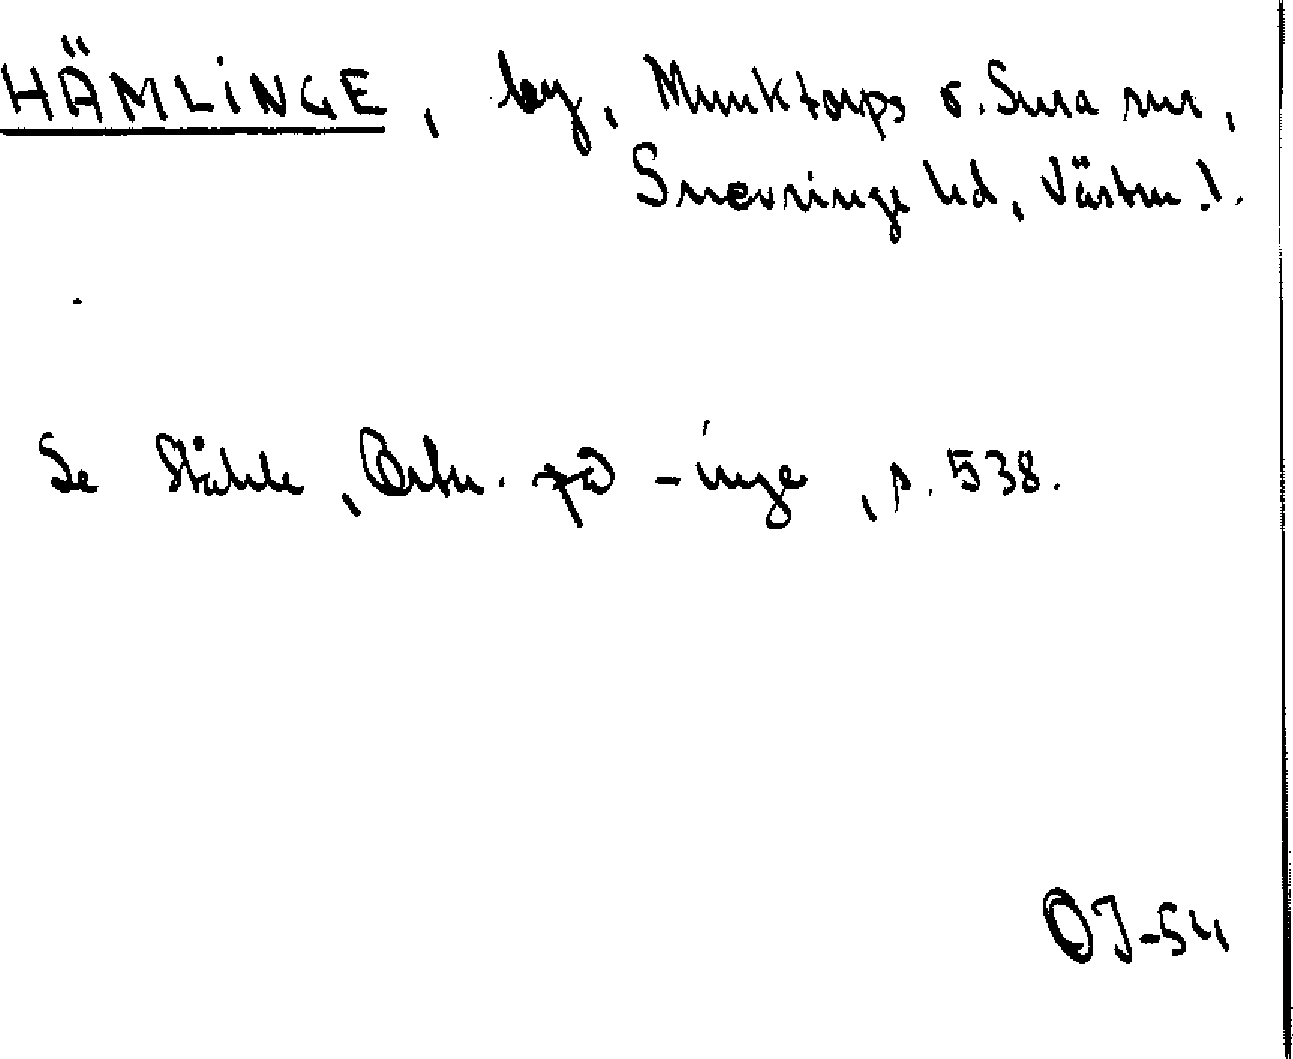 HÄMLINGE, by, Munktorps o. Sura snr,
Snevringe hd, Västm. l.
Se Ståhle, Ortn. på -inge, s. 538.
OJ-54